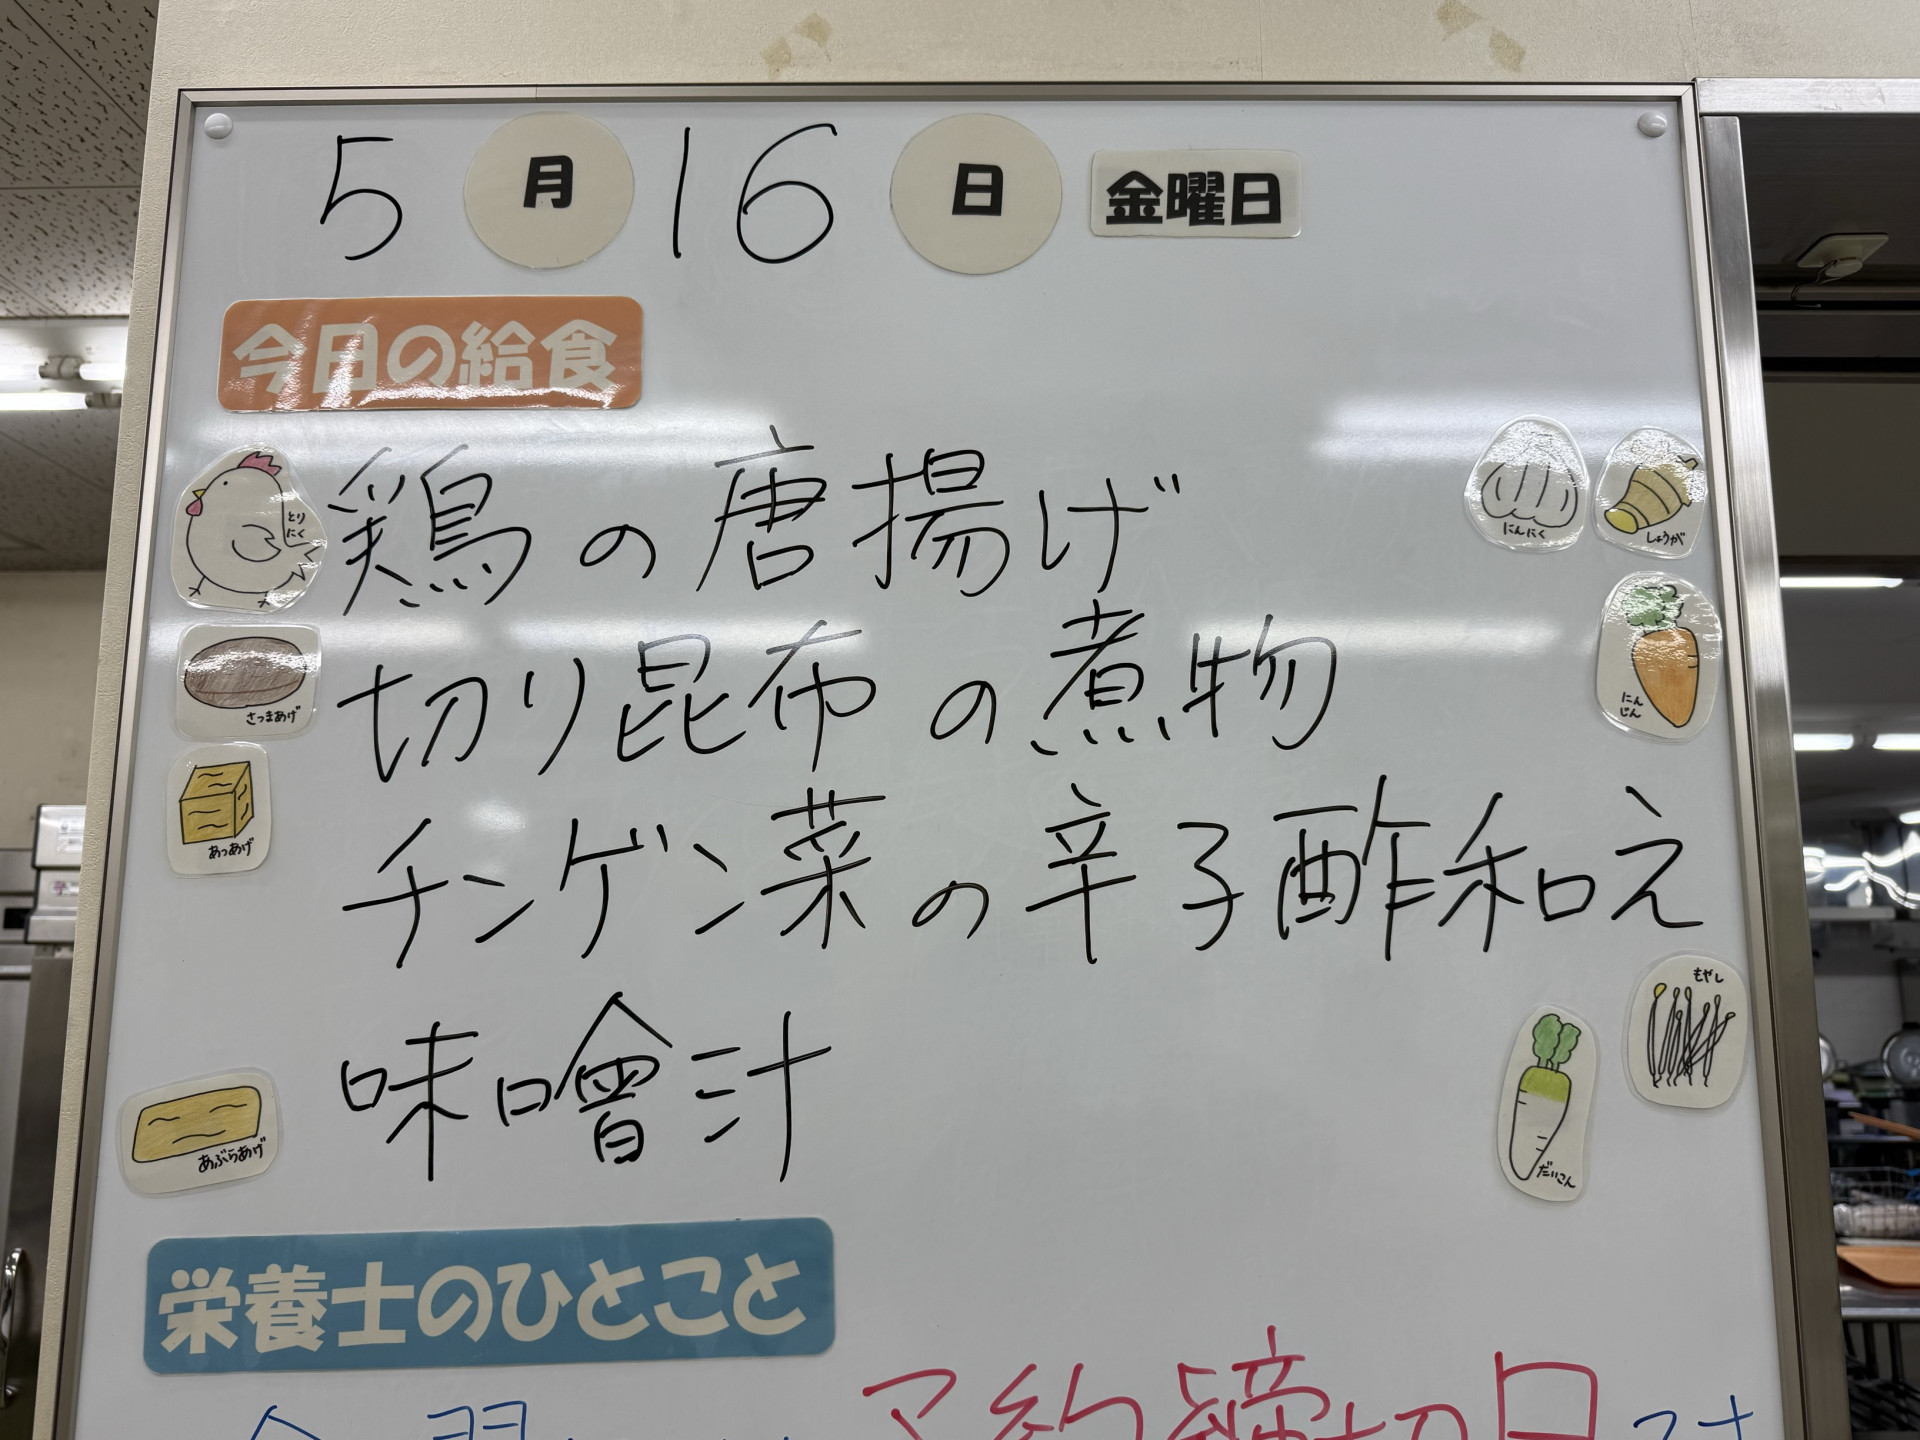 5月16日 金曜日
今日の給食
鶏の唐揚げ
とりにく
にんにく
しょうが
切り昆布の煮物
さつまあげ
にんじん
あつあげ
チンゲン菜の辛子酢和え
もやし
味噌汁
あぶらあげ
だいこん
栄養士のひとこと
予約締切日